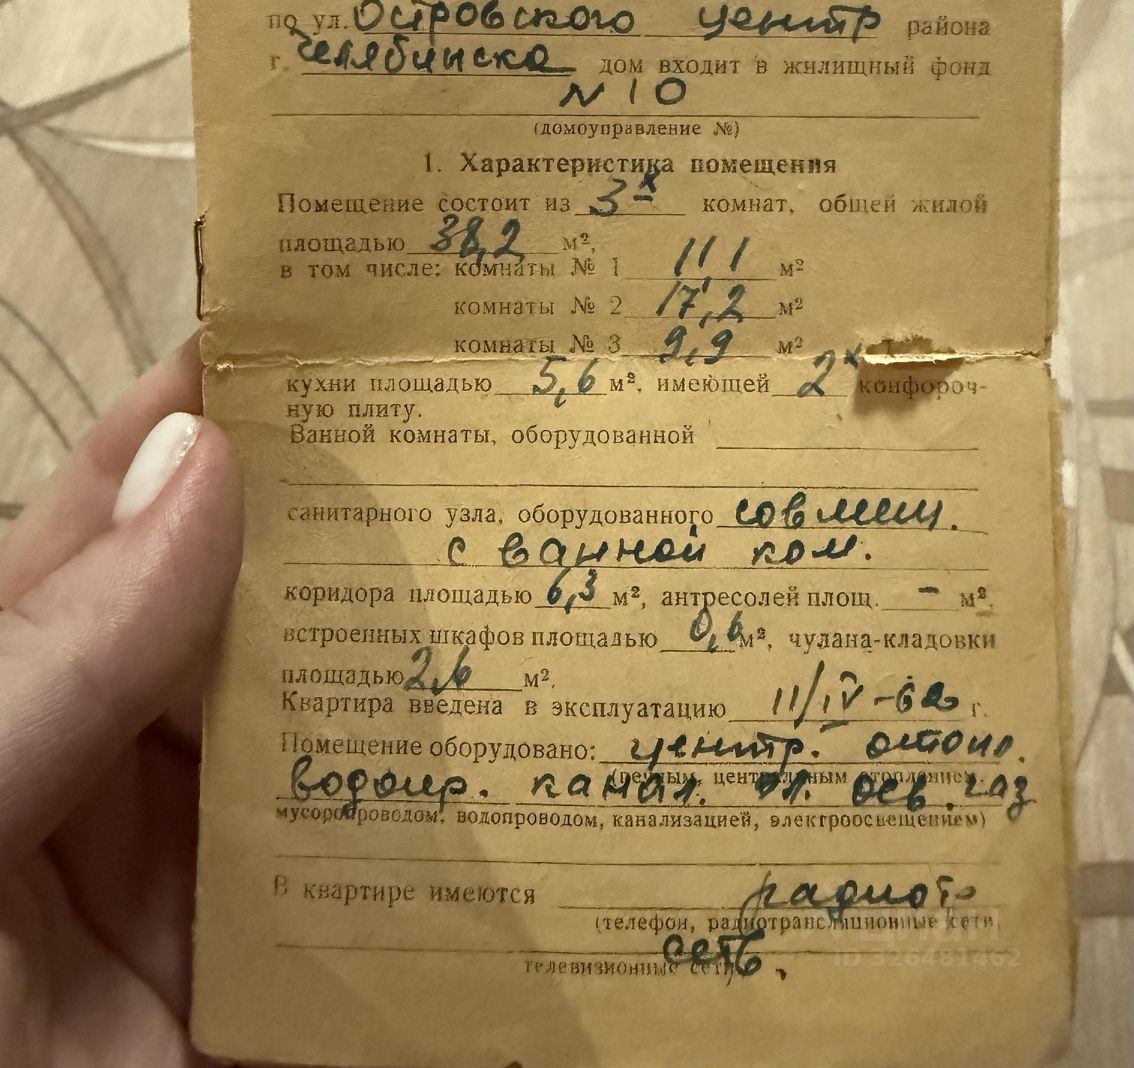 по ул. Островского центр района
г. Челябинска дом входит в жилищный фонд
N 10
(домоуправление №)
1. Характеристика помещения
Помещение состоит из 3х комнат, общей жилой
площадью 38,2 м²,
в том числе: комнаты № 1 11,1 м²
комнаты № 2 17,2 м²
комнаты № 3 9,9 м²
кухни площадью 5,6 м², имеющей 2х конфороч-
ную плиту.
Ванной комнаты, оборудованной
санитарного узла, оборудованного совмещ.
с ванной ком.
коридора площадью 6,3 м², антресолей площ. – м²,
встроенных шкафов площадью 0,6 м², чулана-кладовки
площадью 2,6 м²,
Квартира введена в эксплуатацию 11/IV-62 г.
Помещение оборудовано: центр. отопл.
(печным, центральным отоплением,
водопр. канал. эл. осв. газ
мусоропроводом, водопроводом, канализацией, электроосвещением)
В квартире имеются радиотр
(телефон, радиотрансляционные сети,
сеть.
телевизионные сети)
ID 326481462